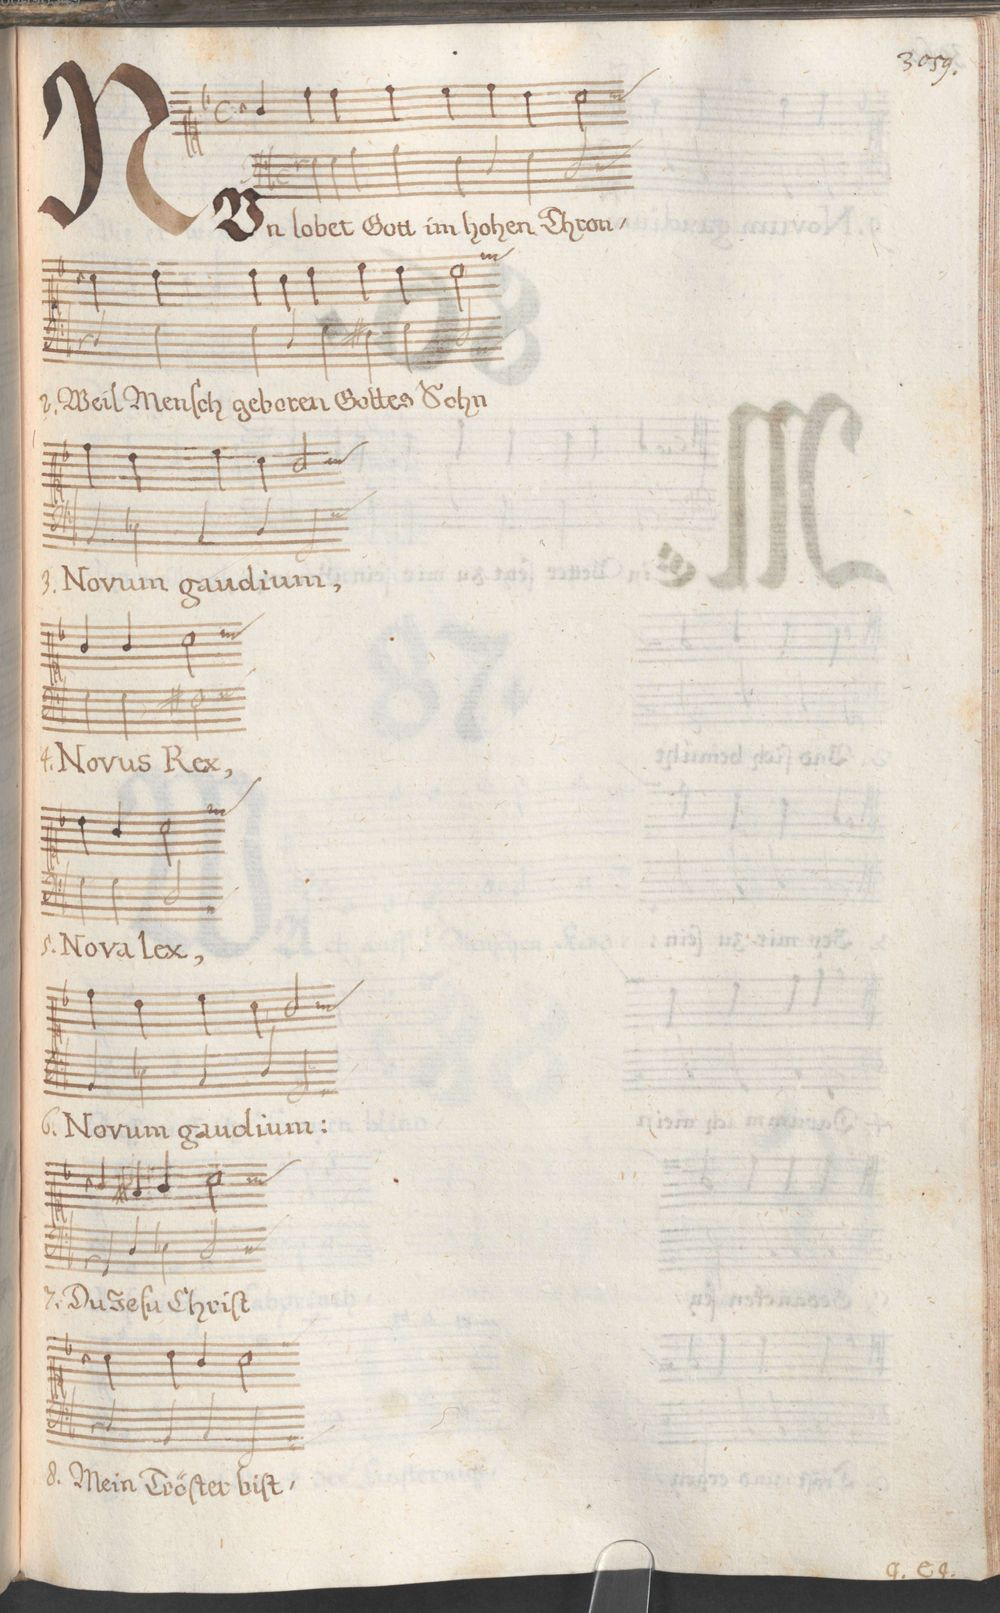 3059.
NUn lobet Gott im hohen Thron,
2. Weil Mensch geboren Gottes Sohn
3. Novum gaudium,
4. Novus Rex,
5. Nova lex,
6. Novum gaudium:
7. Du Jesu Christ
8. Mein Tröster bist,